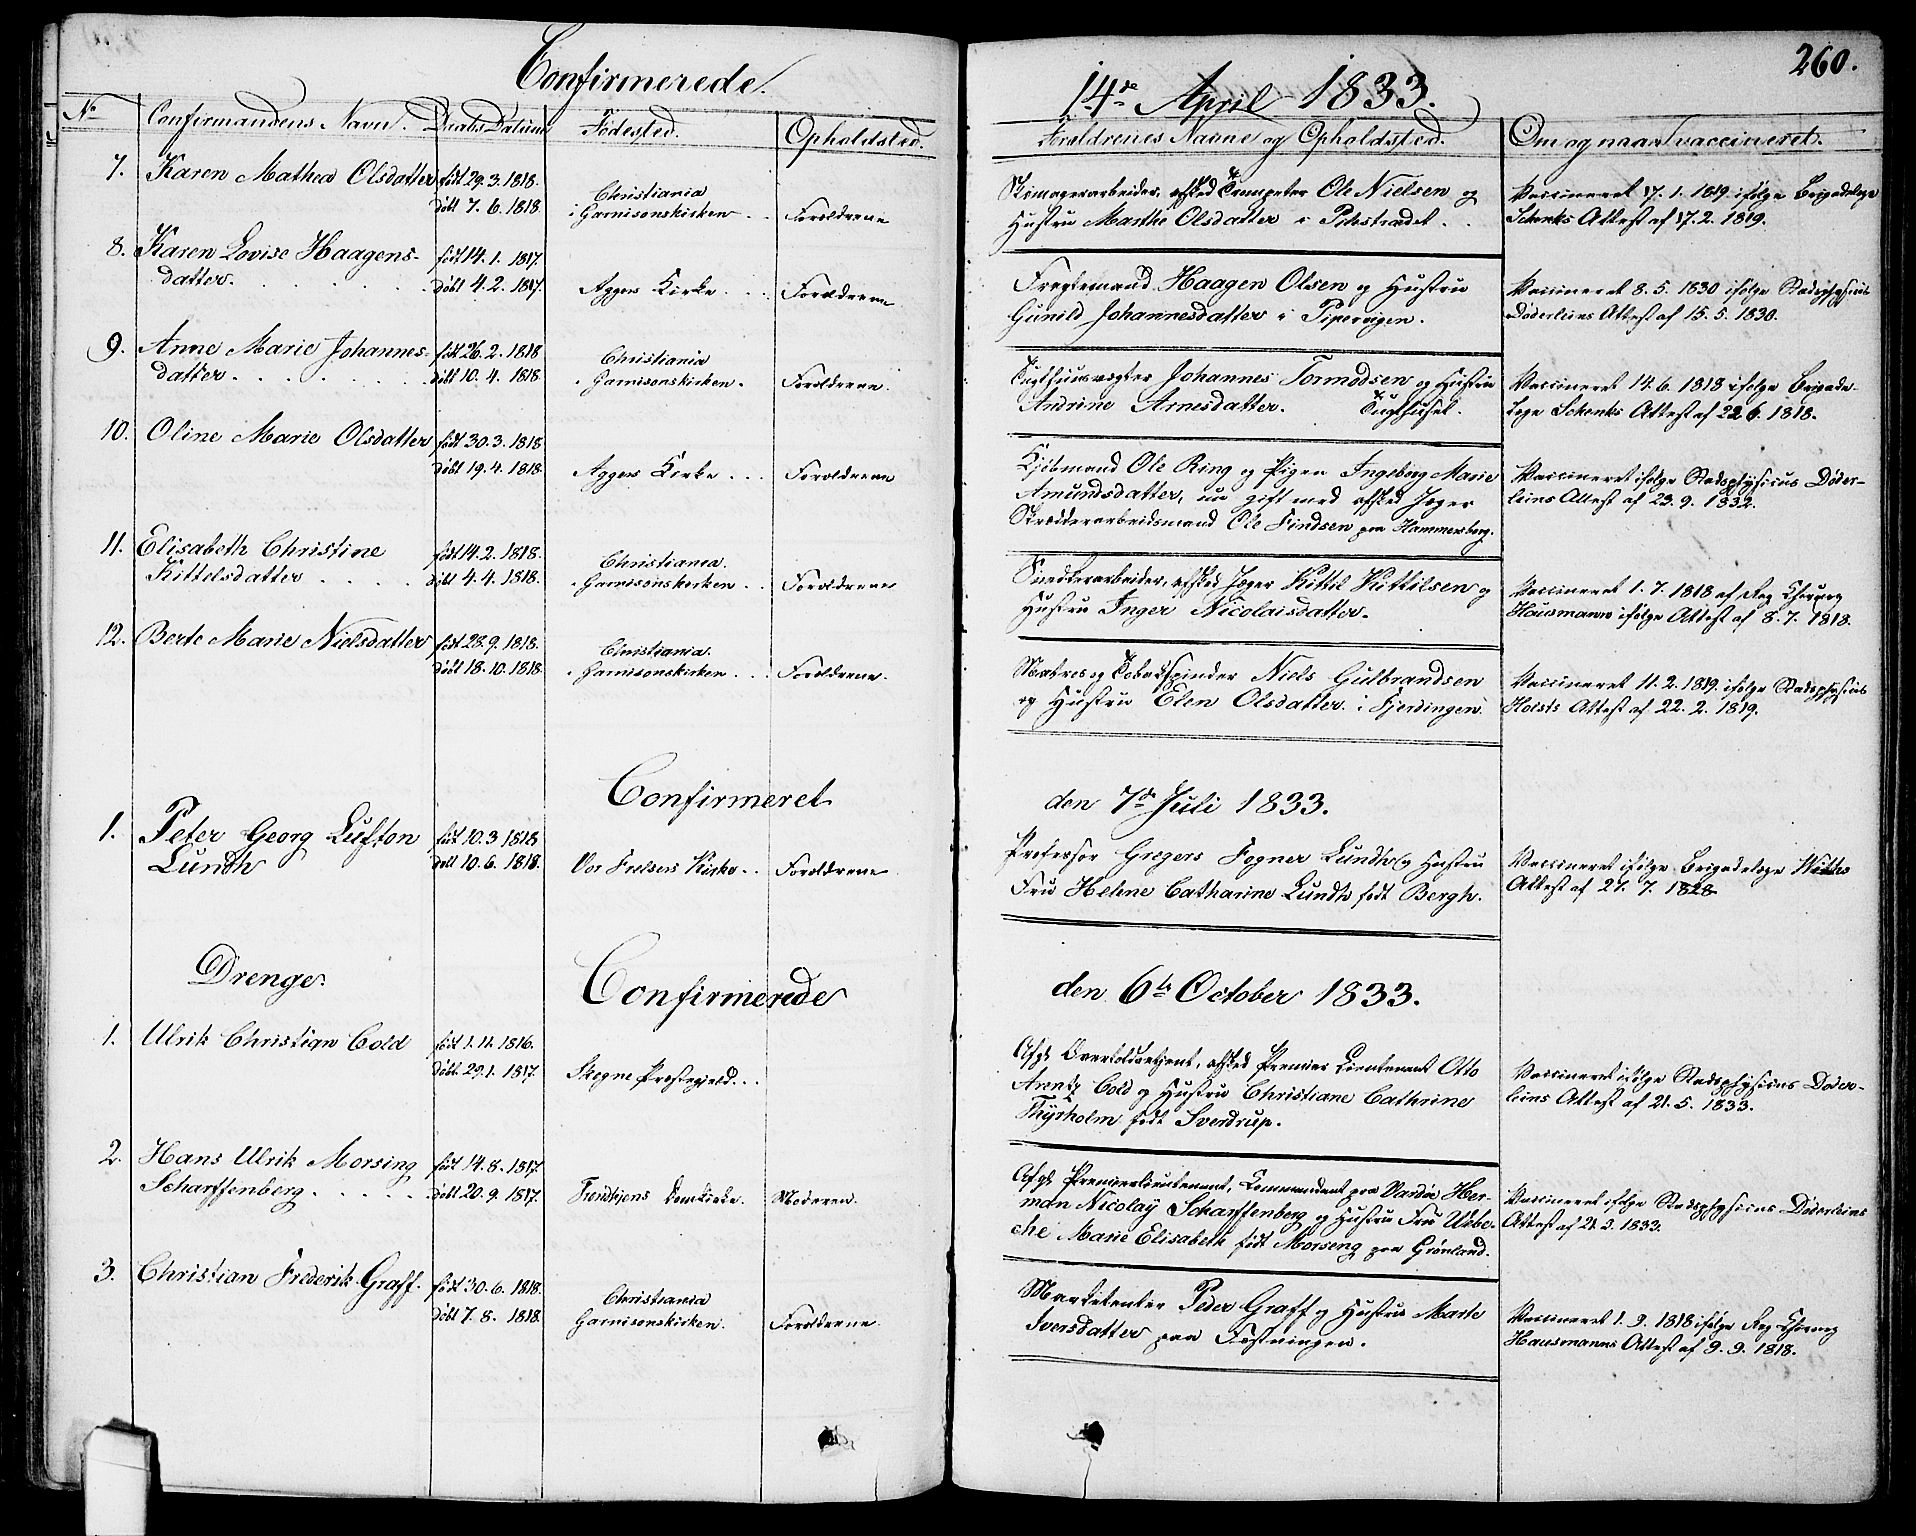 Confirmerede.
14de April 1833.
260.
No
Confirmandens Navn.
Daabs Datum
Fødested.
Opholdsted.
Forældrenes Navne og Opholdsted.
Om og naar vaccineret.
7. Karen Mathea Olsdatter født 29.3.1818.
døbt 7. 6. 1818. Christiania
i Garnisonskirken . . Forældrene
Skomagerarbeider, afsked Trompeter Ole Nielsen og
Hustru Marthe Olsdatter i Pilestrædet . .
Vaccineret 17. 1. 1819 ifølge Brigadelæge
Schenks Attest af 17. 2. 1819.
8. Karen Lovise Haagens- født 14. 1. 1817
datter. . . . . . døbt 4.2. 1817. Aggers Kirke . . . Forældrene
Fragtemand Haagen Olsen og Hustru
Gunild Johannesdatter i Pipervigen.
Vaccineret 8. 5. 1830 ifølge Stadsphysicus
Døderleins Attest af 15. 5. 1830.
9. Anne Marie Johannes- født 26. 2. 1818
datter. . . . . . døbt 10. 4. 1818. Christiania
i Garnisonskirken. Forældrene.
Tugthuusvogter Johannes Tormodsen og Hustru
Andrine Arnesdatter. Tugthuset.
Vaccineret 14. 6. 1818 ifølge Brigade-
læge Schenks Attest af 22. 6. 1818.
10. Oline Marie Olsdatter født 30. 3. 1818
døbt 19. 4. 1818. Aggers Kirke . . . Forældrene
Kjøbmand Ole Ring og Pigen Ingeborg Marie
Amundsdatter, nu gift med afsked Jæger
Skrædderarbeidsmand Ole Findsen paa Hammersborg.
Vaccineret ifølge Stadsphysicus Døder-
leins Attest af 23. 9. 1832.
11. Elisabeth Christine født 14. 2. 1818.
Kittelsdatter . . . . døbt 4. 4. 1818. Christiania.
i Garnisonskirken . . Forældrene
Snedkerarbeider, afsked Jæger Kittil Kittilsen og
Hustru Inger Nicolaisdatter.
Vaccineret 1. 7. 1818 af Reg Chirurg
Hausmann ifølge Attest af 8. 7. 1818.
12. Berte Marie Nielsdatter født 28. 9. 1818.
døbt 18. 10. 1818. Christiania.
i Garnisonskirken . . . Forældrene.
Matros og Tobakspinder Niels Gulbrandsen
og Hustru Elen Olsdatter i Fjerdingen.
Vaccineret 11. 2. 1819. ifølge Stadsphysicus
Holsts Attest af 22. 2. 1819.
Confirmeret den 7de Juli 1833.
1. Peter Georg Lufton født 10.3 1818
Lundh døbt 10. 6. 1818. Vor Frelsers Kirke . . Forældrene
Professor Gregers Fogner Lundh og Hustru
Fru Helene Catharine Lundh født Bergh.
Vaccineret ifølge Brigadelæge Withs
Attest af 27. 7. 1828
Drenge. Confirmerede den 6te October 1833.
1. Ulrik Christian Cold født 1. 11. 1816.
døbt 29. 1. 1817. Skogne Præstegjeld. . .
Afgk Overtoldbetjent, afsked Premier Lieutenant Otto
Arentz Cold og Hustru Christiane Cathrine
Thyrholm født Sverdrup.
Vaccineret ifølge Stadsphysicus Døder-
leins Attest af 21. 5. 1833.
2. Hans Ulrik Morsing født 14. 8. 1817.
Scharffenberg . . . . . døbt 20. 9. 1817. Trondhjems Domkirke. Moderen.
Afgk Premierlieutenant, Commandant paa Vardøe Her-
man Nicolay Scharffenberg og Hustru Fru Wibe-
che Marie Elisabeth født Morseng paa Grønland.
Vaccineret ifølge Stadsphysicus Døderleins
Attest af 21. 5. 1833.
3. Christian Frederik Graff. født 30. 6. 1818.
døbt 7. 8. 1818. Christiania
Garnisonskirken. Forældrene.
Marketenter Peder Graff og Hustru Marte
Iversdatter paa Fæstningen.
Vaccineret 1. 9. 1818 ifølge Reg Chirurg
Hausmanns Attest af 9. 9. 1818.